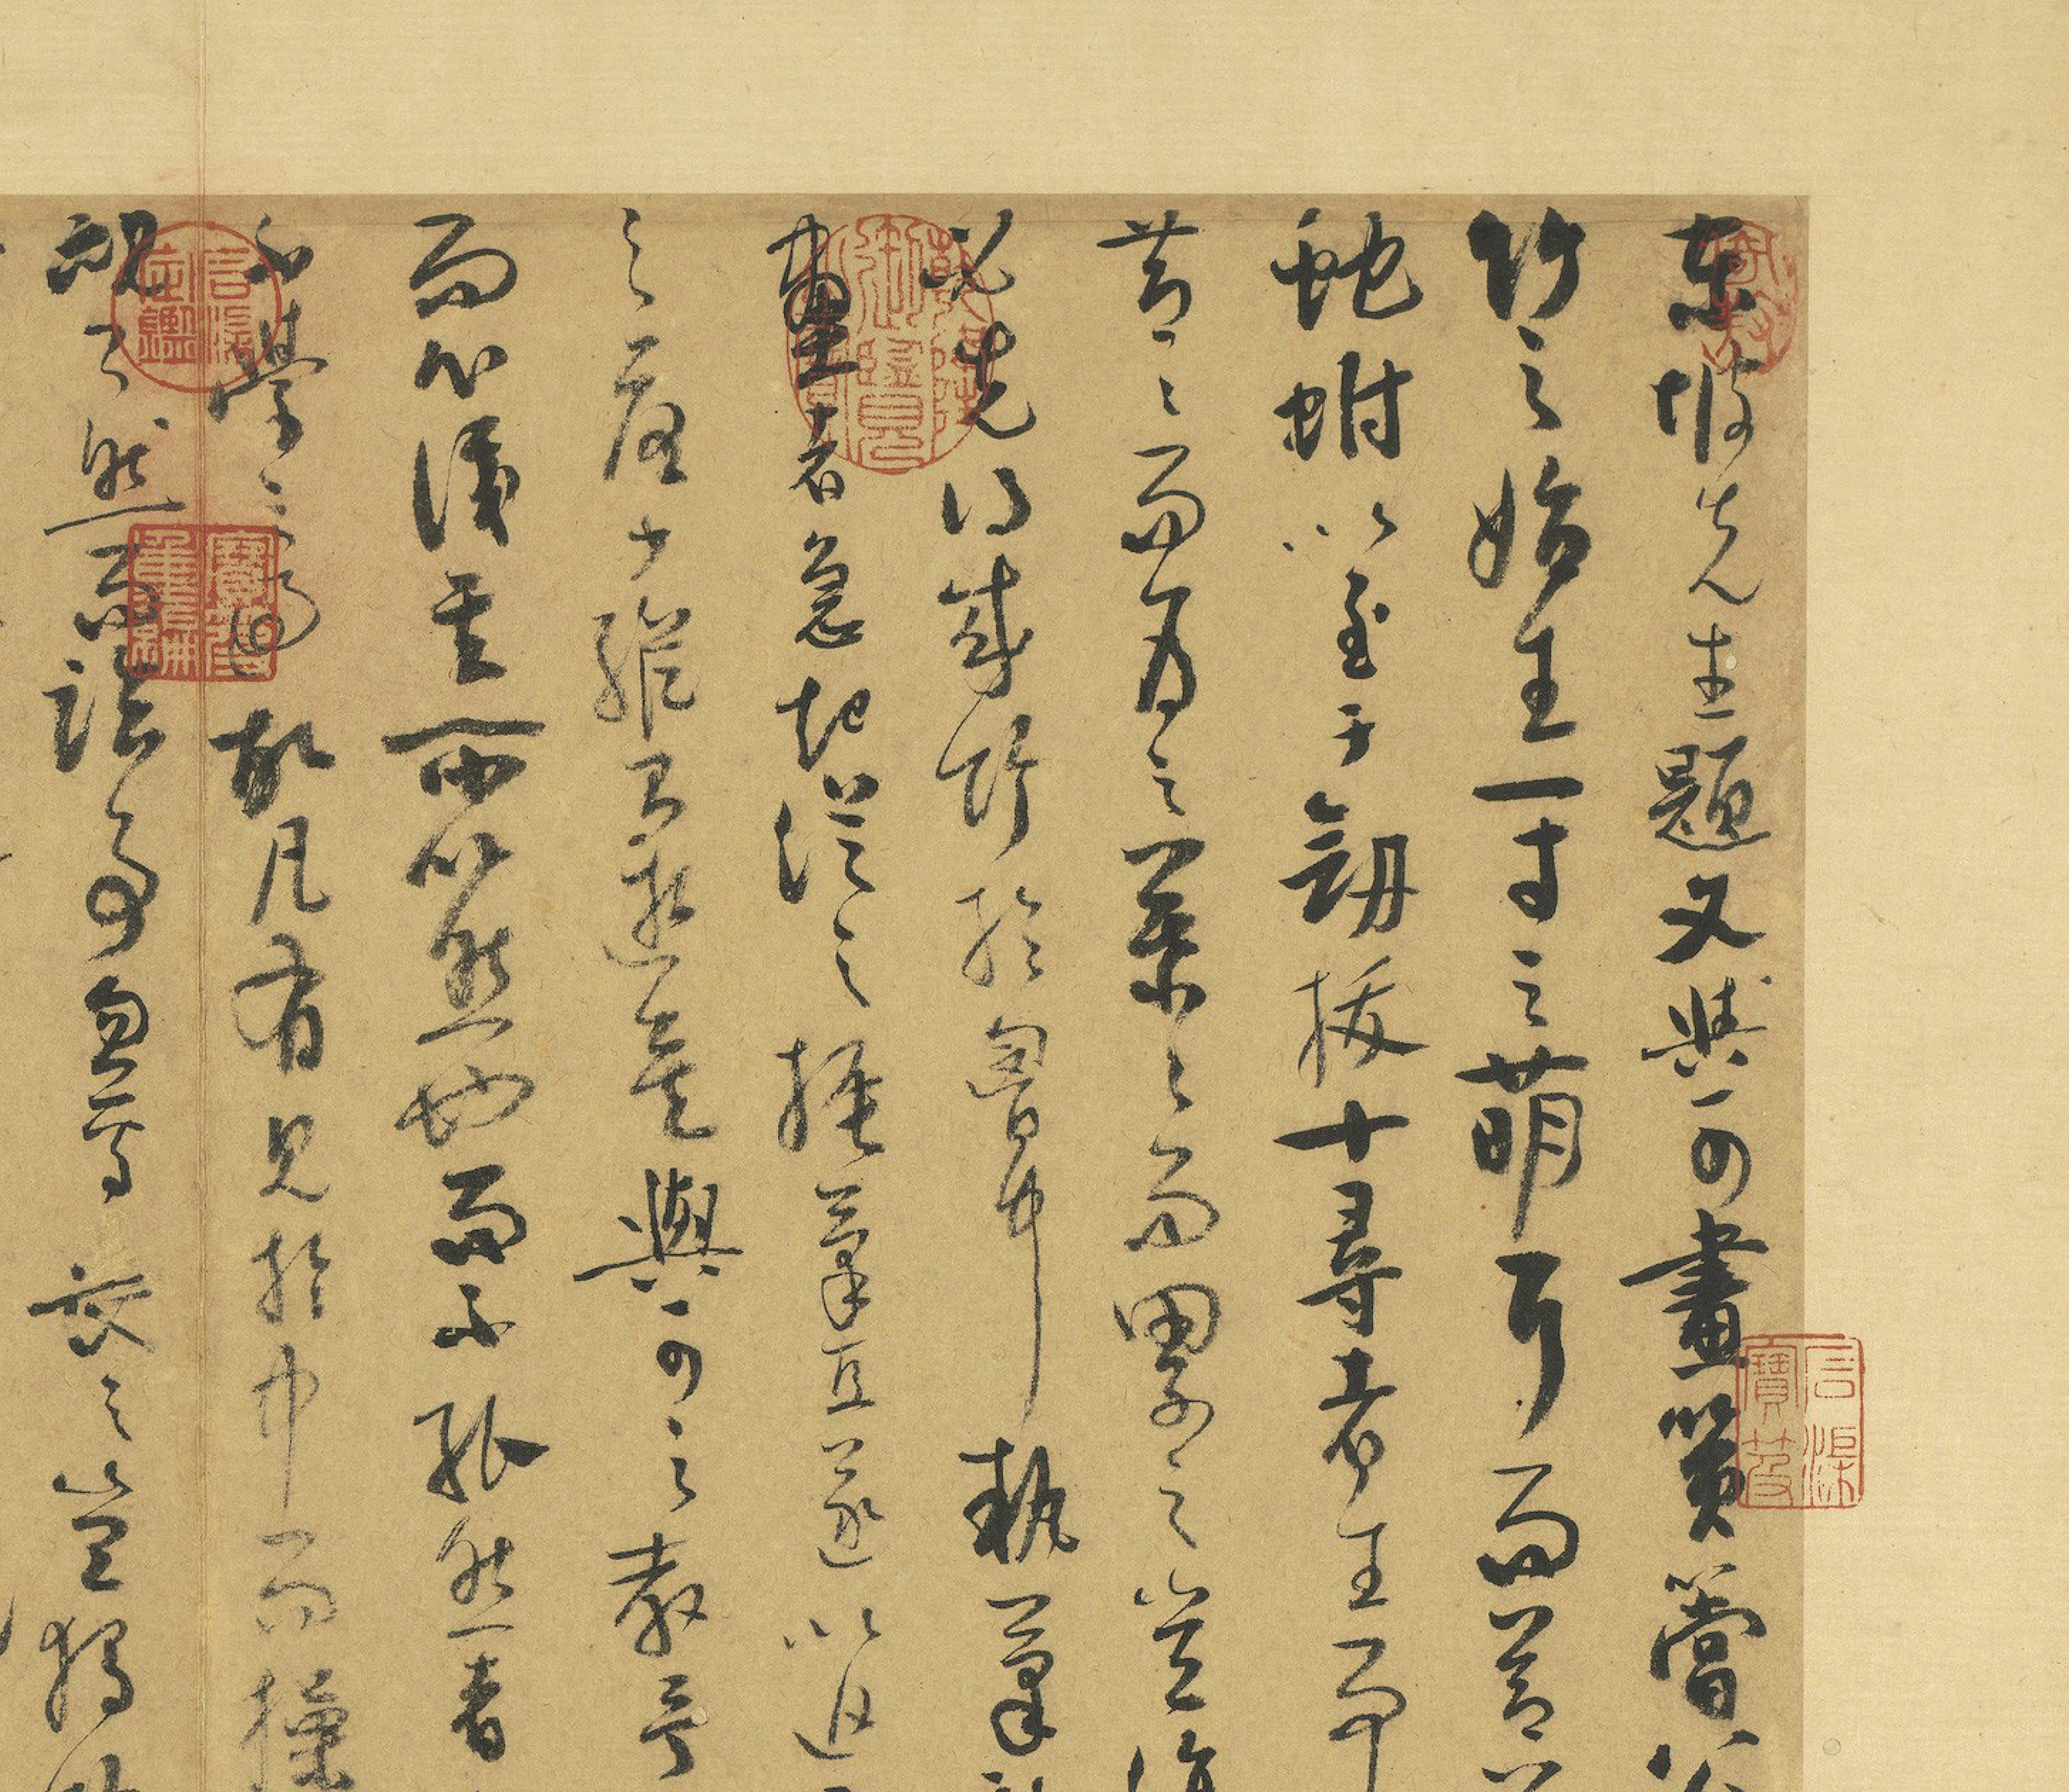 東坡先生題文與可畫篔簹谷
竹之始生一寸之萌耳而節
蛇蚹以至于劒拔十尋者生而
節〻而為之葉〻而累之豈復
必先得成竹於胸中執筆
畫者急起從之振筆直遂以追
之 少縱則逝矣與可之教予
而心識其所以然也而不能然者
不學之過也故凡有見於中而操
視了然而臨事忽焉喪之豈獨
乾隆御覽之寶
石渠寶笈
石渠定鑑
寶笈重編